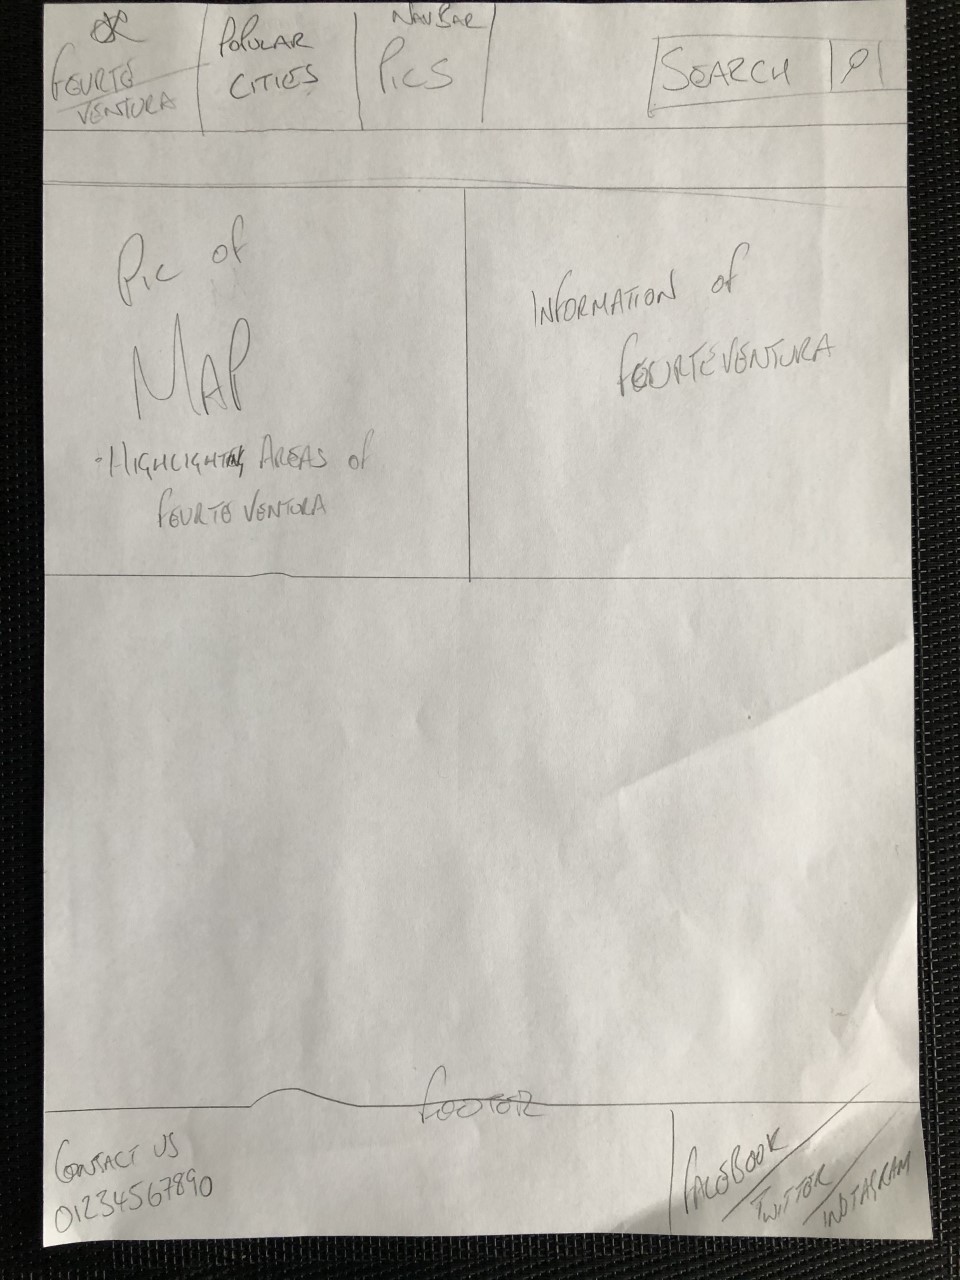 FEURTE
VENTURA
POPULAR
CITIES
NAVBAR
PICS
SEARCH
PIC of
MAP
• HIGHLIGHTING AREAS of
FEURTE VENTURA
INFORMATION of
FEURTEVENTURA
FOOTER
CONTACT US
01234567890
FACEBOOK
TWITTER
INSTAGRAM